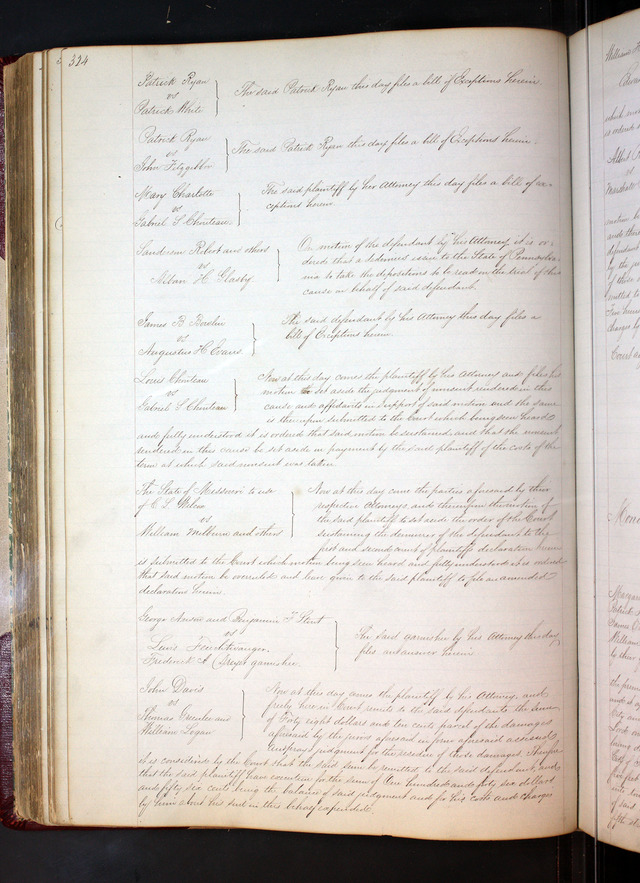 324
Patrick Ryan
vs
Patrick White
The said Patrick Ryan this day files a bill of Exceptions herein
Patrick Ryan
vs
John Fitzgibbon
The said Patrick Ryan this day files a bill of Exceptions herein.
Mary Charlotte
vs
Gabriel S Chouteau
The said plaintiff by her Attorney this day files a bill of ex-
ceptions herein
Sanderson Robert and others
vs
Alban H. Glasby
On motion of the defendant by his Attorney it is or-
dered that a dedimus issue to the State of Pennsylva-
nia to take the depositions to be read in the trial of this
cause on behalf of said defendant
James B Bowlin
vs
Augustus H Evans
The said defendant by his Attorney this day files a
bill of Exceptions herein
Louis Chouteau
vs
Gabriel S Chouteau
Now at this day comes the plaintiff by his Attorney and files his
motion to set aside the judgment of nonsuit rendered in this
cause and affidavits in support of said motion and the same
is thereupon submitted to the Court which being seen heard
and fully understood it is ordered that said motion be sustained and that the nonsuit
rendered in this cause be set aside on payment by the said plaintiff of the costs of the
term at which said nonsuit was taken
The State of Missouri to use
of
vs
William Milburn and others
Now at this day come the parties aforesaid by their
respective Attorneys and thereupon the motion of
the said plaintiff to set aside the order of the Court
sustaining the demurrer of the defendant to the
first and second count of plaintiffs declaration herein
is submitted to the Court which motion being seen heard and fully understood it is ordered
that said motion be overruled and leave given to the said plaintiff to file an amended
declaration herein
George and Benjamin F
vs
Lewis Feuchtwanger
Frederick A garnishee
The said garnishee by his Attorney this day
files an answer herein
John Davis
vs
Thomas and
William Logan
Now at this day comes the plaintiff by his Attorney, and
freely here in Court remits to the said defendants the sum
of Forty eight dollars and ten cents parcel of the damages
aforesaid by the jurors aforesaid in form aforesaid assessed
and prays judgment for the residue of those damages Therefore
it is considered by the Court that the said sum be remitted to the said defendants and
that the said plaintiff have execution for the sum of One hundred and forty six dollars
and fifty six cents being the balance of said judgment and for his costs and charges
by him about his suit in this behalf expended.